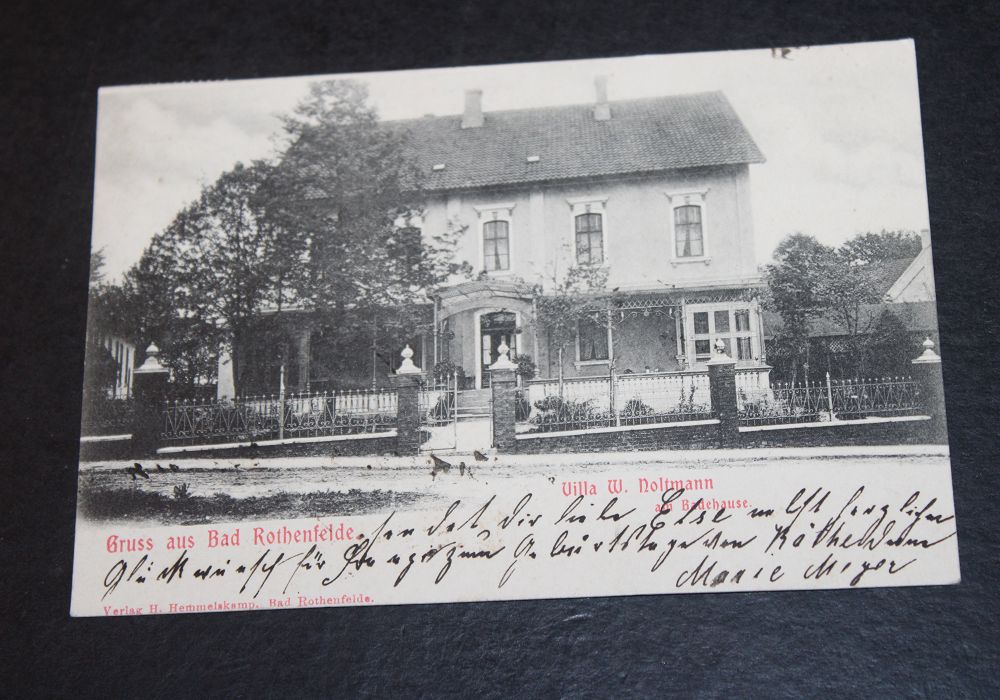 Villa W. Noltmann
am Badehause.
Gruss aus Bad Rothenfelde.
sendet dir liebe Else nebst herzlichen
Glückwunsch für zum Geburtstage von Käthe deine
Marie Meyer
Verlag H. Hemmelskamp, Bad Rothenfelde.